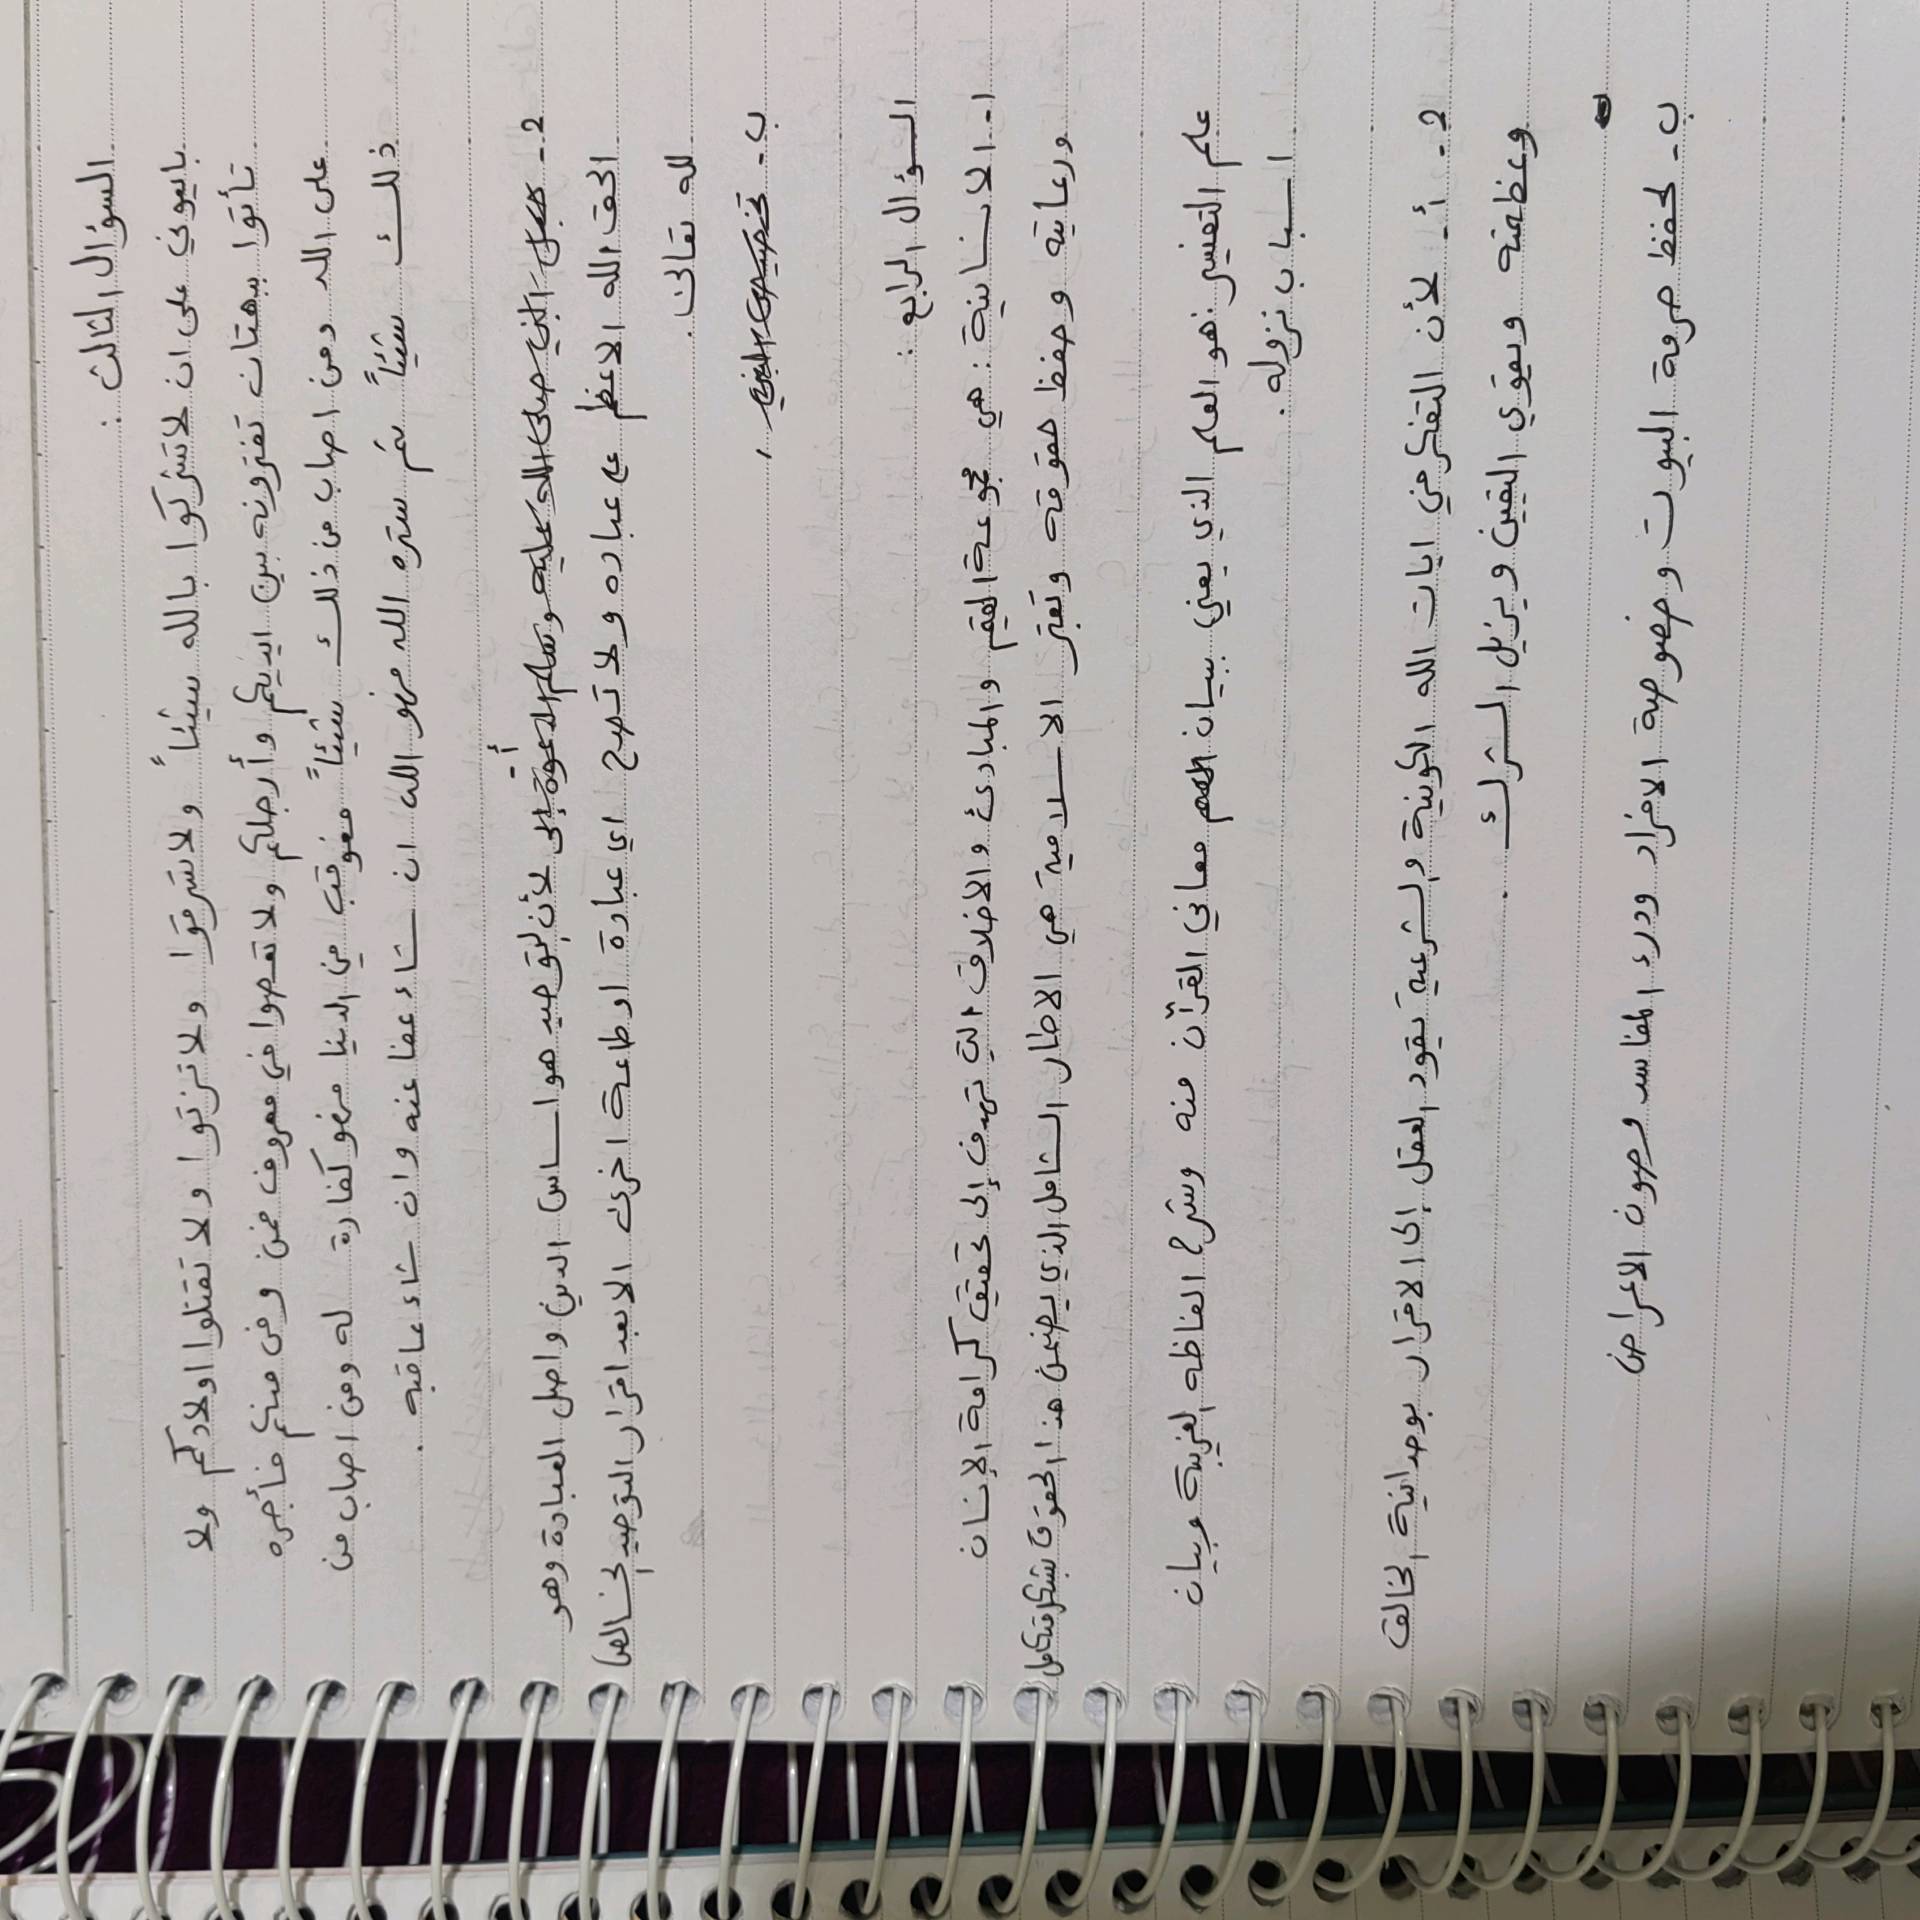 السؤال الثالث :
بايعوني على ان لاتشركوا بالله شيئاً ولاتسرقوا ولاتزنوا ولا تقتلوا اولادكم ولا
تأتوا ببهتان تفترونه بين ايديكم وأرجلكم ولا تعصوا في معروف فمن وفى منكم فأجره
على الله ومن اصاب من ذلك شيئاً فعوقب في الدنيا فهو كفارة له ومن اصاب من
ذلك شيئاً ثم ستره الله فهو الله ان شاء عفا عنه وان شاء عاقبه .
2- أ- لأن التوحيد هو اساس الدين واصل العبادة وهو
الحق الله الاعظم على عباده ولا تصح اي عبادة اوطاعة اخرى الابعد اقرار التوحيد الخالص
لله تعالى .
ب-
السؤال الرابع :
1- الانسانية : هي مجموعة القيم والمبادئ والاخلاق التي تهدف إلى تحقيق كرامة الإنسان
ورعاية وحفظ حقوقه وتعتبر الاسلامية هي الاطار الشامل الذي يضمن هذا الحقوق بشكل متكامل
علم التفسير : هو العلم الذي يعني ببيان معاني القرآن منه وشرح الفاظه الغريبة وبيان
اسباب نزوله .
2- أ- لأن التفكر في ايات الله الكونية والشرعية يقود العقل إلى الاقرار بوحدانية الخالق
وعظمته ويقوي اليقين ويزيل الشرك .
ب- لحفظ حرمة البيوت وخصوصية الافراد ودرء المفاسد وصون الاعراض